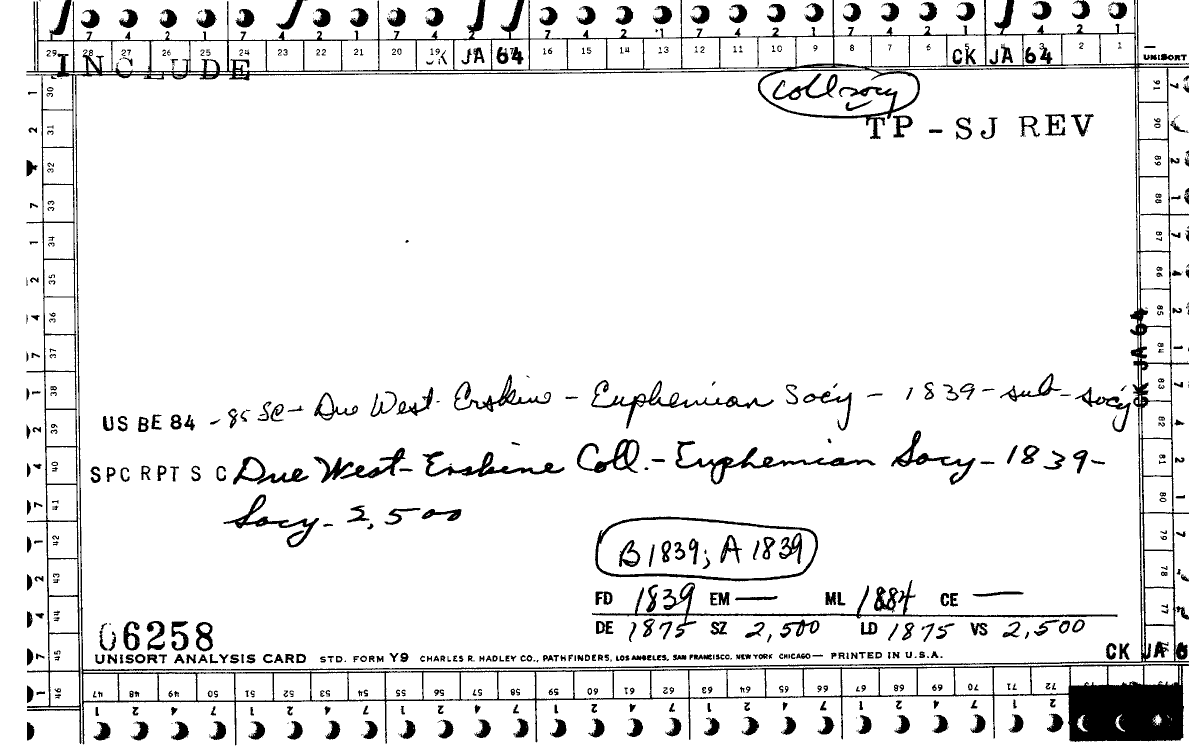 7 4 2 1 7 4 2 1 7 4 2 1 7 4 2 1 7 4 2 1 7 4 2 1 7 4 2 1
29 28 27 26 25 24 23 22 21 20 19 16 15 14 13 12 11 10 9 8 7 6 3 2 1
CK JA 64 CK JA 64 UNISORT
INCLUDE
Coll socy
TP - SJ REV
US BE 84 - 85 SC - Due West - Erskine - Euphemian Socy - 1839 - sub - socy
SPC RPT S C Due West - Erskine Coll. - Euphemian Socy - 1839 -
Socy - 2,500
B 1839; A 1839
FD 1839 EM — ML 1884 CE —
DE 1875 SZ 2,500 LD 1875 VS 2,500
06258
UNISORT ANALYSIS CARD STD. FORM Y9 CHARLES R. HADLEY CO., PATHFINDERS, LOS ANGELES, SAN FRANCISCO, NEW YORK CHICAGO — PRINTED IN U.S.A.
CK JA 6
CK JA 64
30 31 32 33 34 35 36 37 38 39 40 41 42 43 44 45 46
91 90 89 88 87 86 85 84 83 82 81 80 79 78 77
47 48 49 50 51 52 53 54 55 56 57 58 59 60 61 62 63 64 65 66 67 68 69 70 71 72
1 2 4 7 1 2 4 7 1 2 4 7 1 2 4 7 1 2 4 7 1 2 4 7 1 2